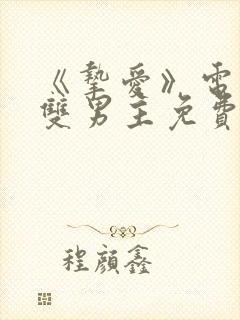 《摯愛》電
雙男主免費
程顏鑫